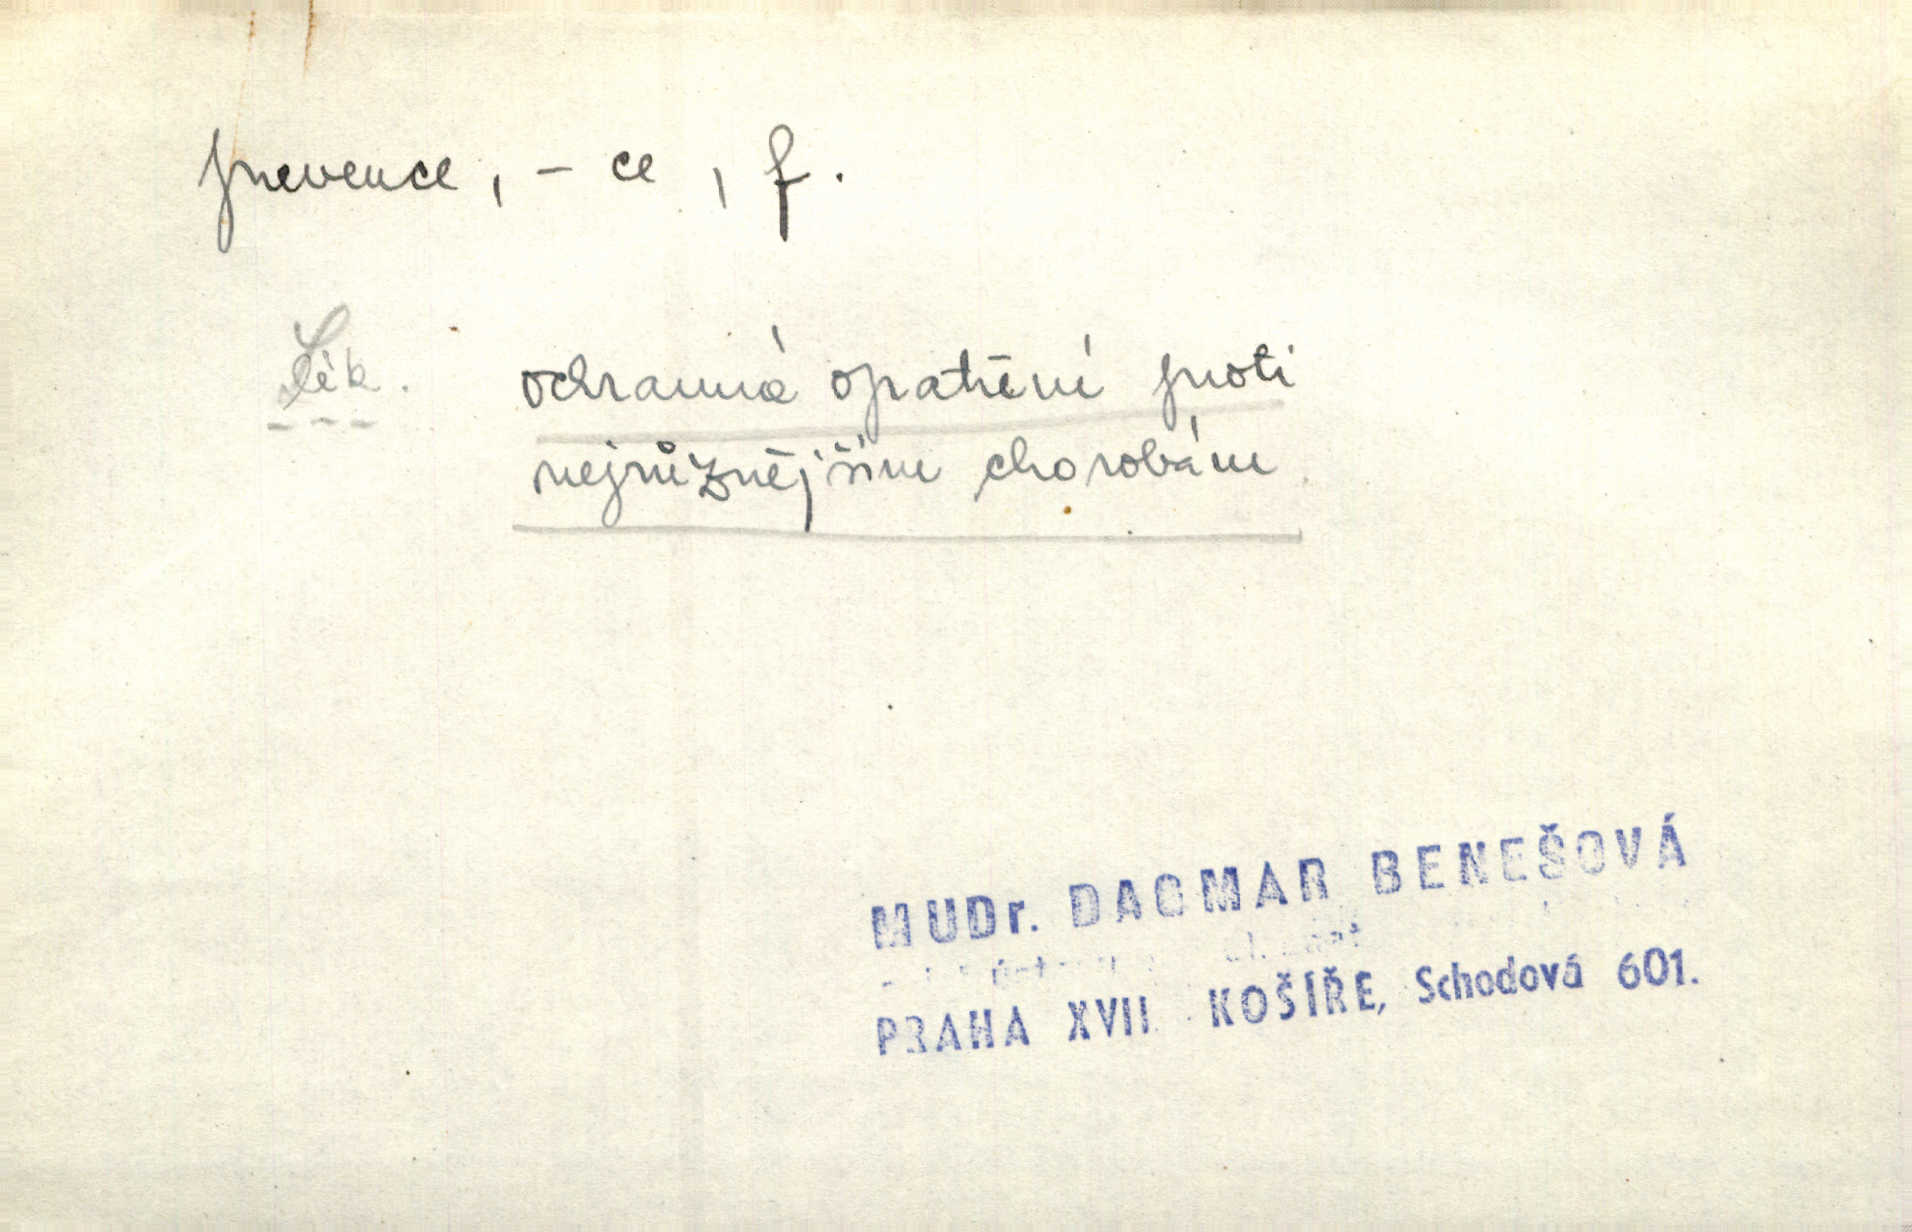 prevence, - ce, f.
Lék. ochranná opatření proti
nejrůznějším chorobám
MUDr. DAGMAR BENEŠOVÁ
PRAHA XVII KOŠÍŘE, Schodová 601.